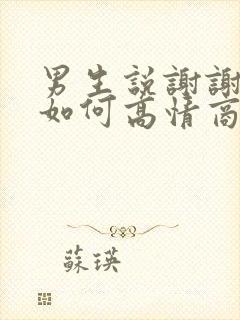 男生說謝謝
如何高情商
蘇瑛